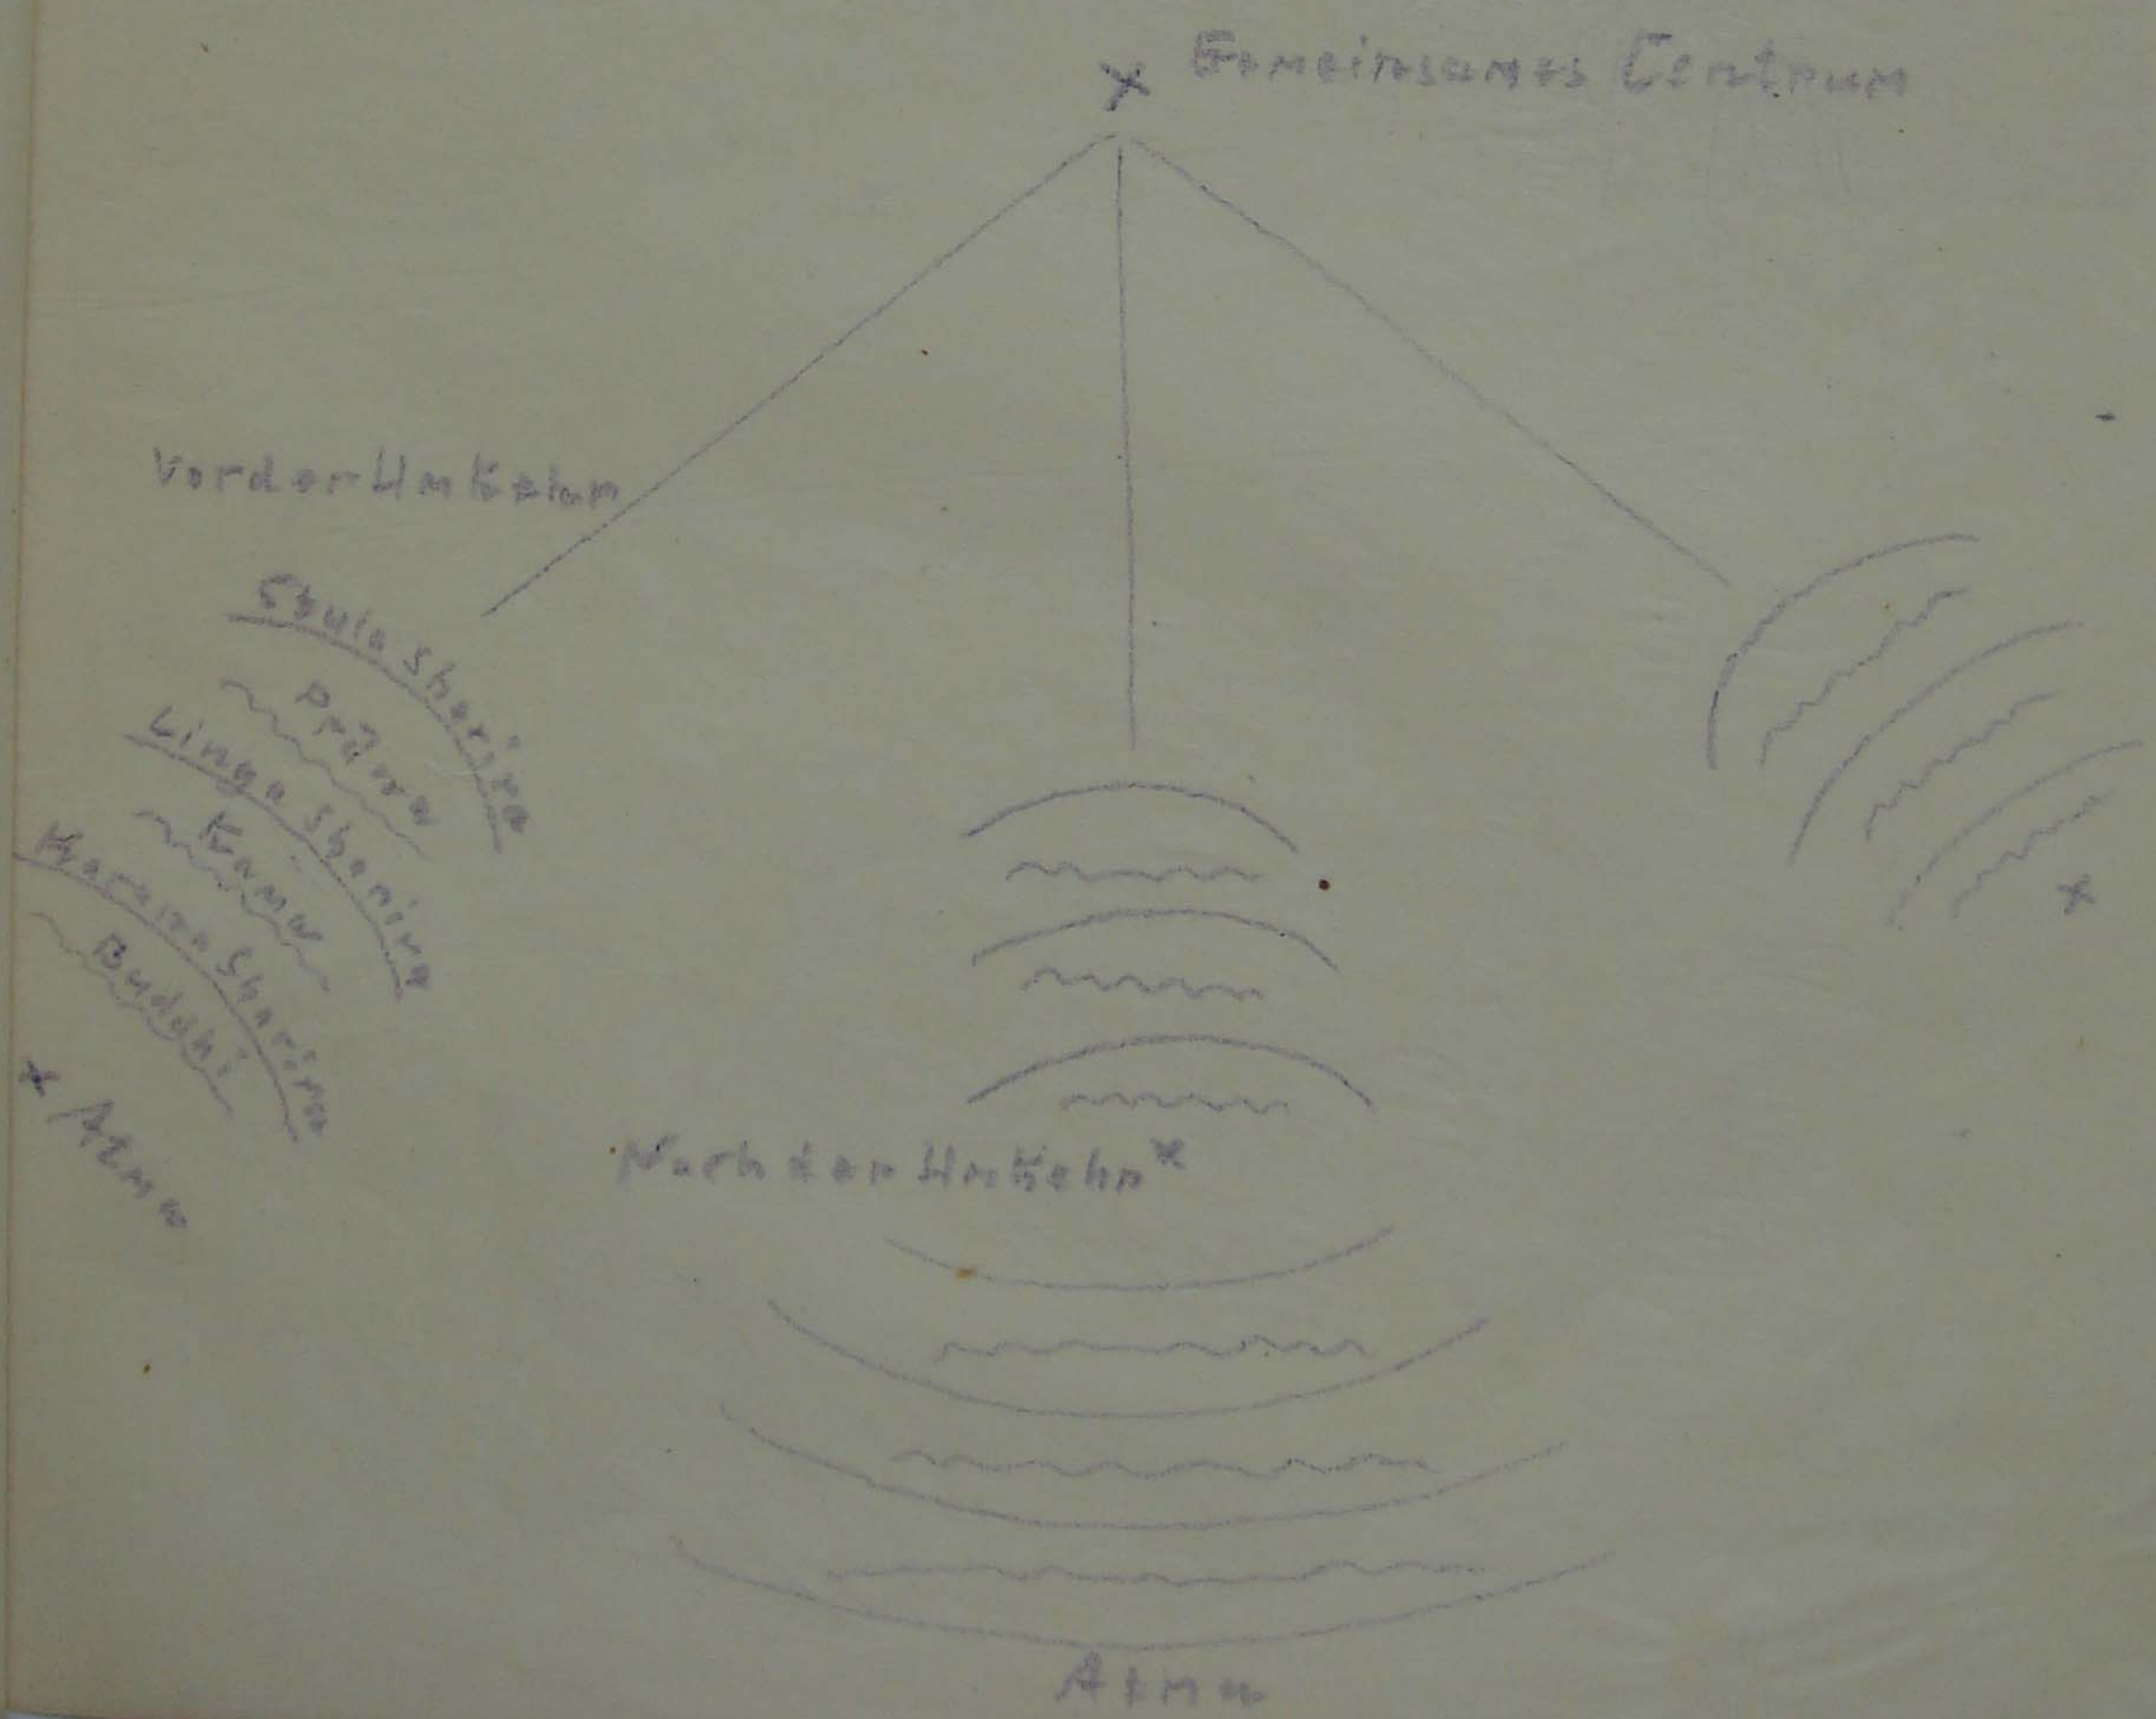 Gemeinsames Centrum
Vor der Umkehr
Stula Sharira
Prâna
Linga Sharira
Kama
Karana Sharira
Buddhi
Atma
Nach der Umkehr
Atma